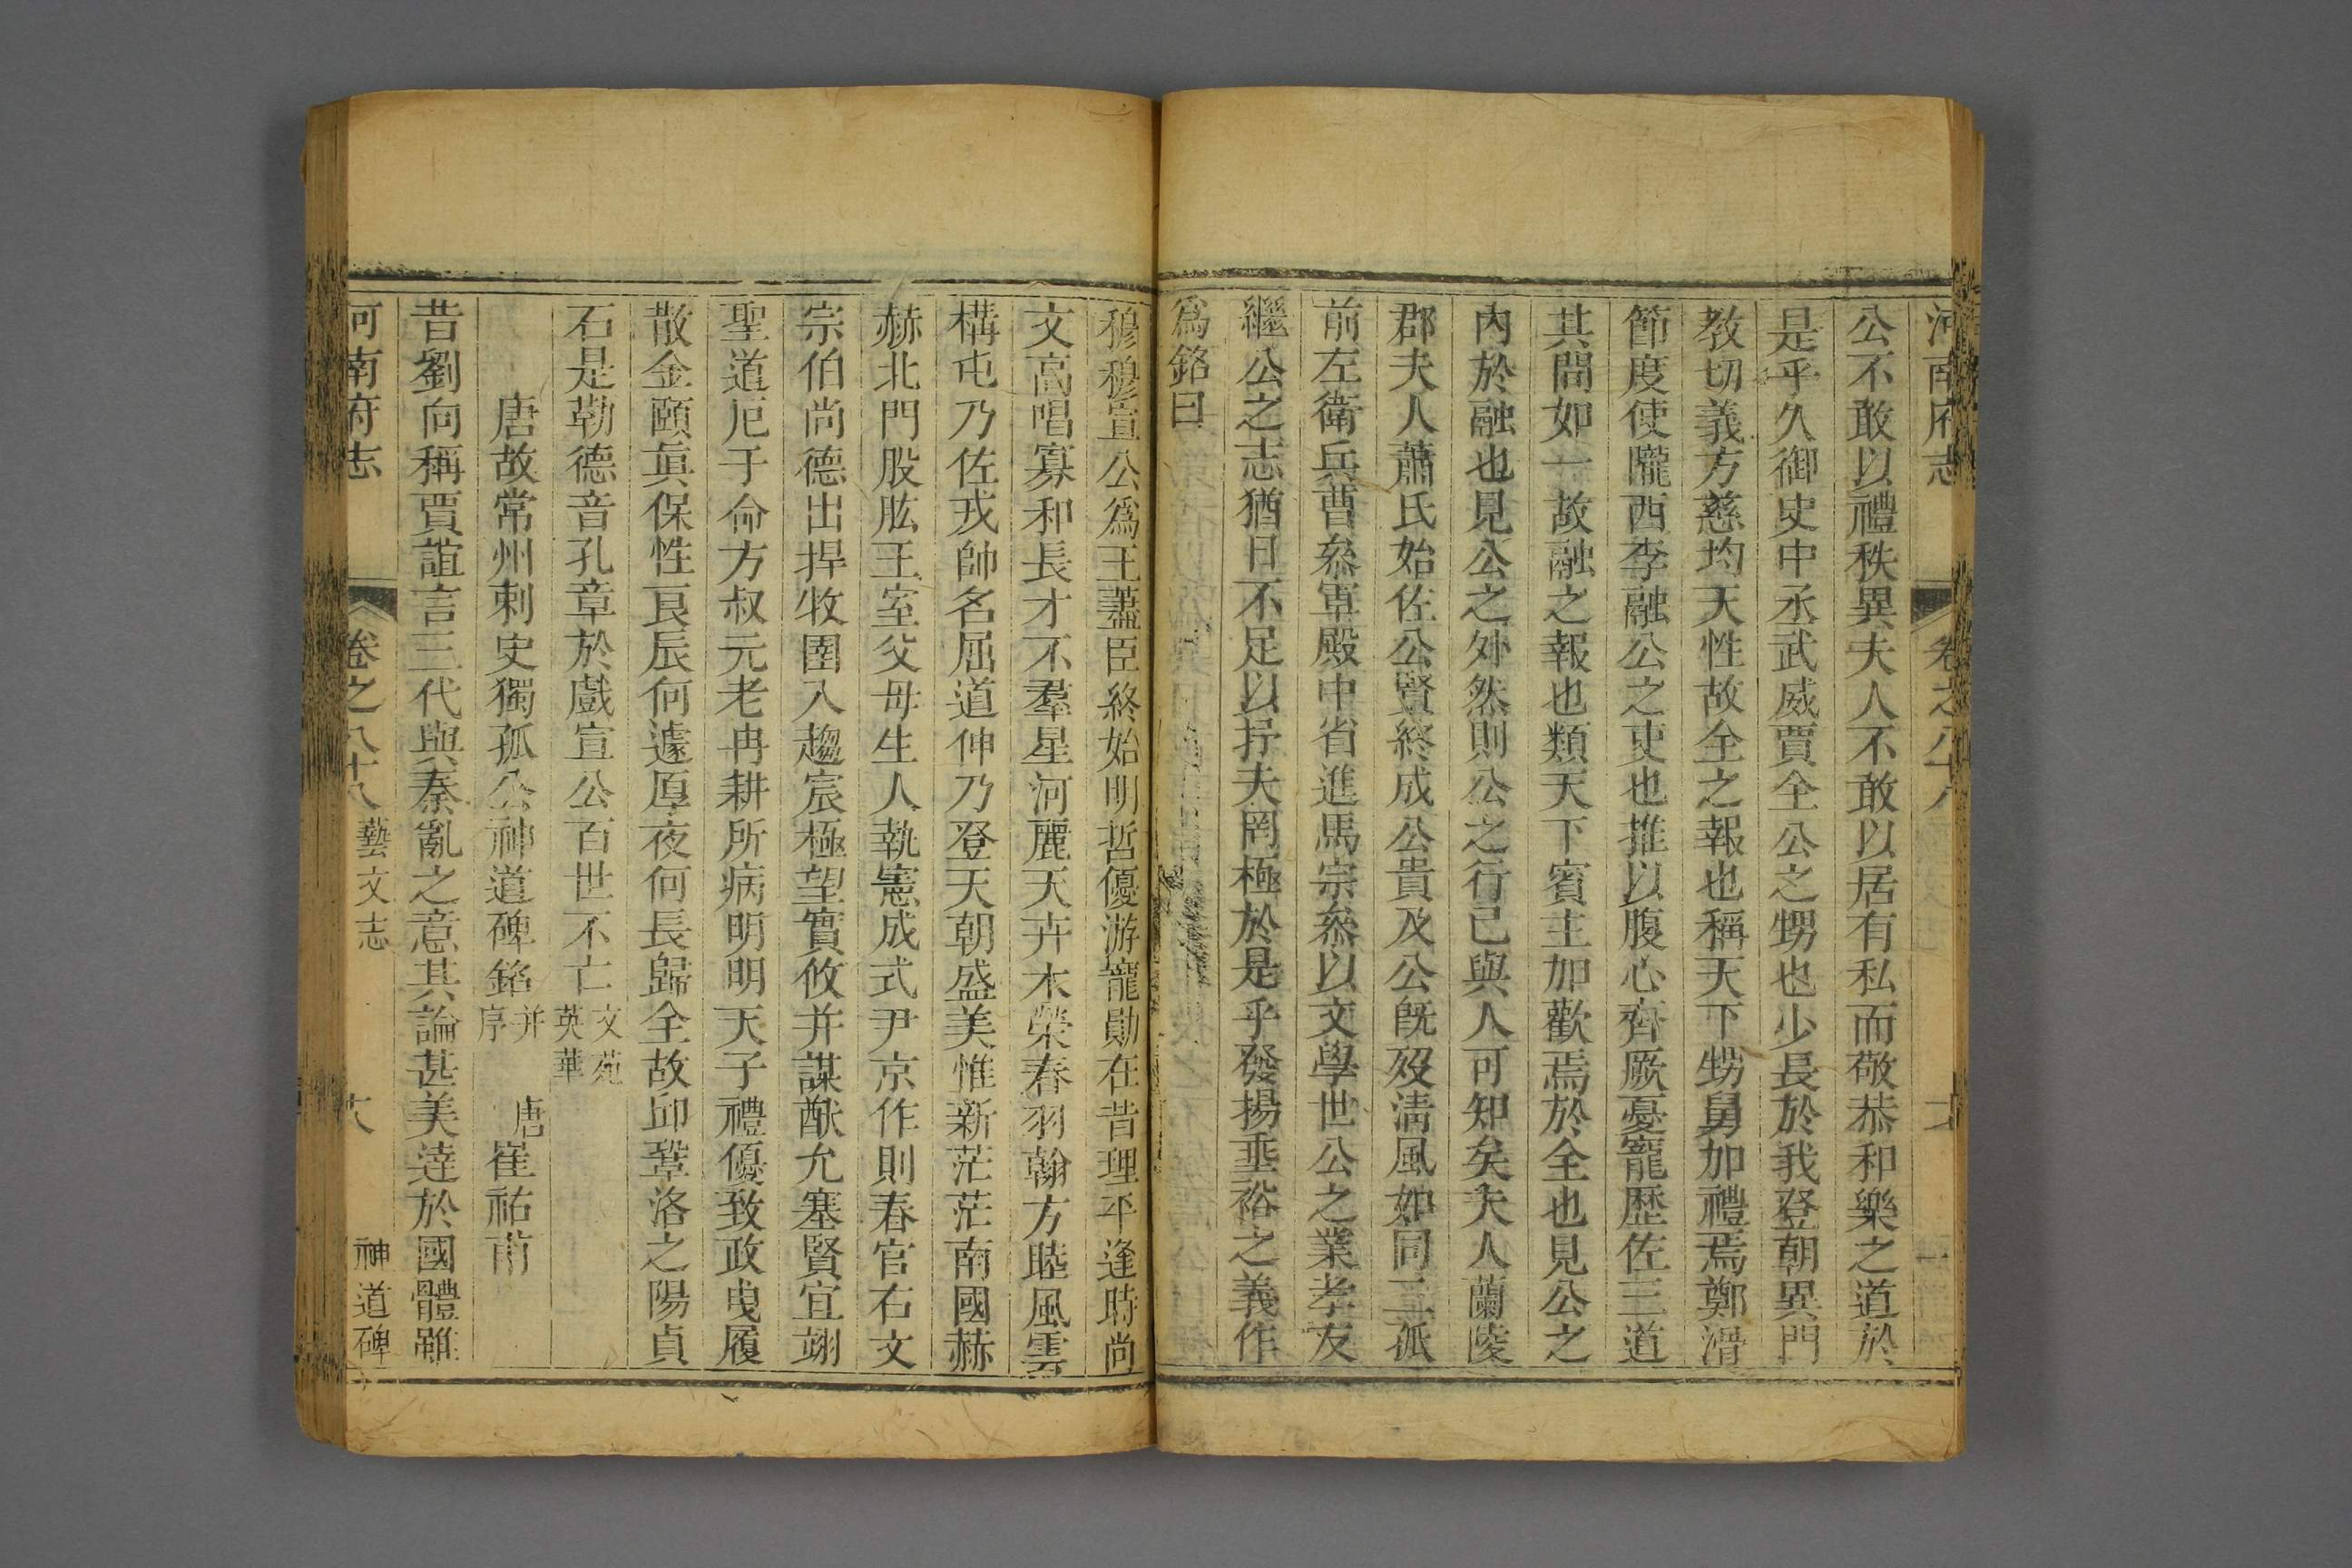 河南府志
卷之八十八
公不敢以禮秩異夫人不敢以居有私而敬恭和樂之道於
是乎久御史中丞武威賈全公之甥也少長於我登朝異門
教切義方慈均天性故全之報也稱天下甥舅加禮焉鄭滑
節度使隴西李融公之吏也推以腹心齊厥憂寵歷佐三道
其間如一故融之報也類天下賓主加歡焉於全也見公之
內於融也見公之外然則公之行己與人可知矣夫人蘭陵
郡夫人蕭氏始佐公賢終成公貴及公旣歿淸風如同二孤
前左衛兵曹叅軍殿中省進馬宗叅以文學世公之業孝友
繼公之志猶日不足以抒夫罔極於是乎發揚垂裕之義作
爲銘曰
穆穆宣公爲王藎臣終始明哲優游寵勛在昔理平逢時尚
文高唱寡和長才不羣星河麗天卉木榮春羽翰方睦風雲
構屯乃佐戎帥名屈道伸乃登天朝盛美惟新茫茫南國赫
赫北門股肱王室父母生人執憲成式尹京作則春官右文
宗伯尚德出捍牧圉入趨宸極望實攸并謀猷允塞賢宜翊
聖道厄于命方叔元老冉耕所病明明天子禮優致政曳履
散金頤眞保性良辰何遽厚夜何長歸全故邱鞏洛之陽貞
石是勒德音孔章於戲宣公百世不亡文苑英華
唐故常州刺史獨孤公神道碑銘并序 唐崔祐甫
昔劉向稱賈誼言三代與秦亂之意其論甚美達於國體雖
河南府志 卷之八十八 藝文志 神道碑